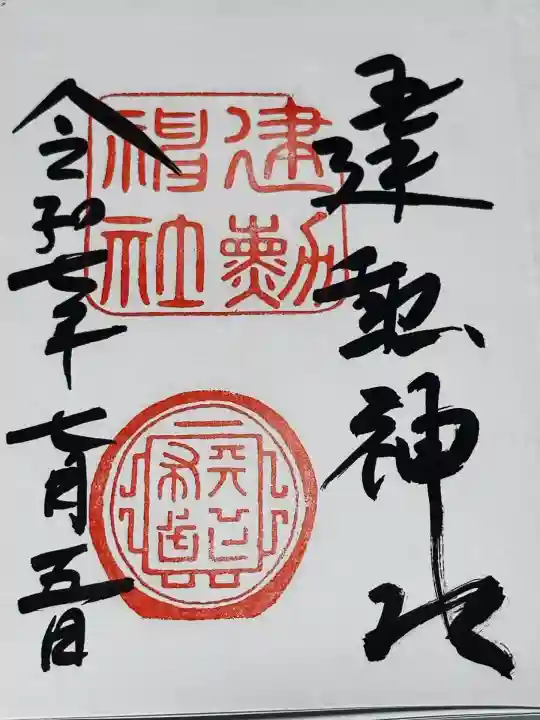 建勲神社
建勲
神社
天下布武
令和七年七月五日